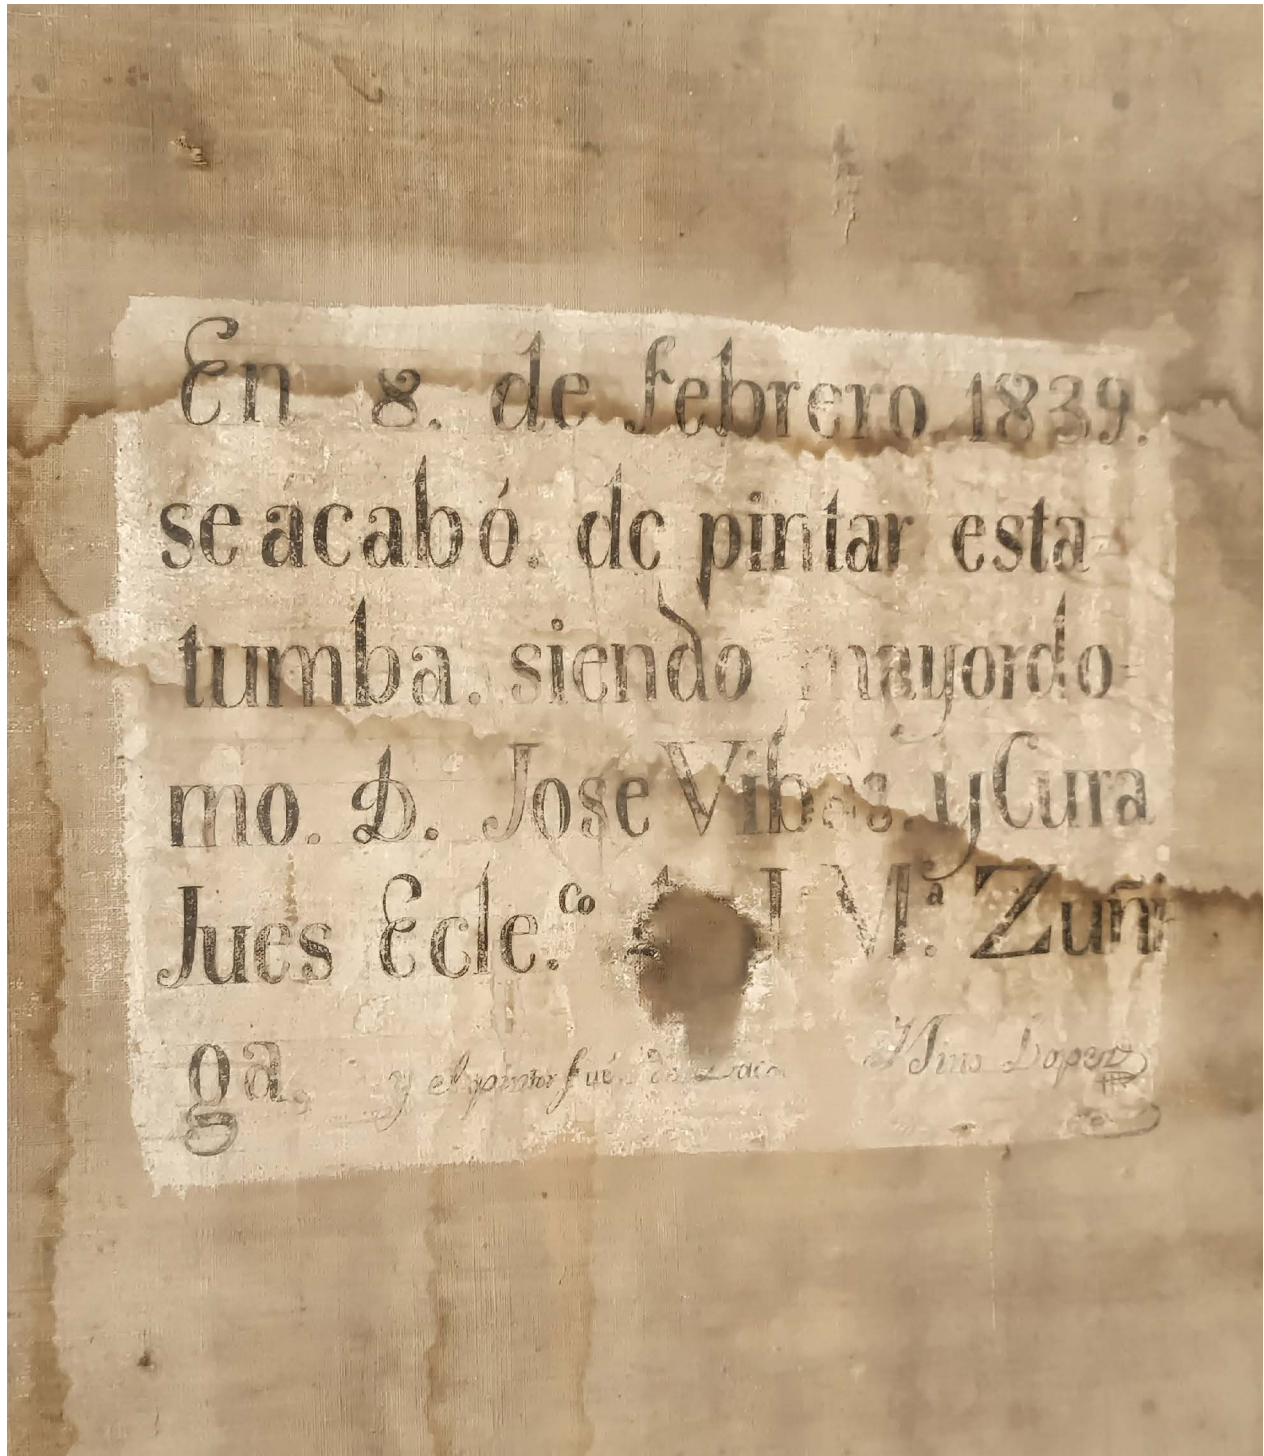 En 8. de febrero 1839.
se acabó. de pintar esta
tumba. siendo mayordo=
mo. D. Jose Vibas. y Cura
Jues Ecle.co J. M.a Zuñi
ga, y el pintor fué Lopez